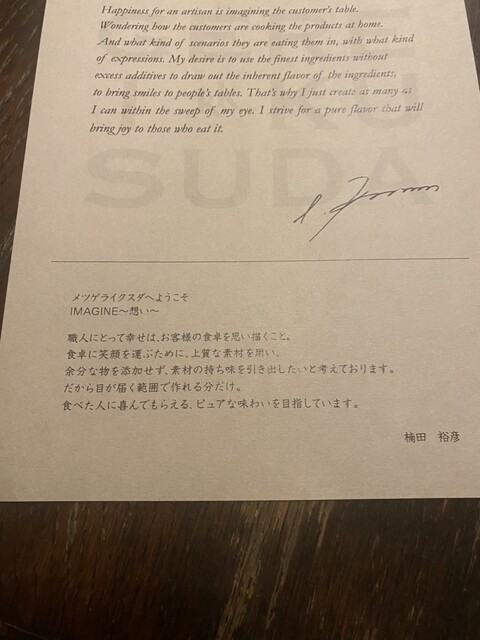 Happiness for an artisan is imagining the customer's table.
Wondering how the customers are cooking the products at home.
And what kind of scenarios they are eating them in, with what kind
of expressions. My desire is to use the finest ingredients without
excess additives to draw out the inherent flavor of the ingredients,
to bring smiles to people's tables. That's why I just create as many as
I can within the sweep of my eye. I strive for a pure flavor that will
bring joy to those who eat it.
SUDA
メツゲライクスダへようこそ
IMAGINE〜想い〜
職人にとって幸せは、お客様の食卓を思い描くこと。
食卓に笑顔を運ぶために、上質な素材を用い、
余分な物を添加せず、素材の持ち味を引き出したいと考えております。
だから目が届く範囲で作れる分だけ。
食べた人に喜んでもらえる、ピュアな味わいを目指しています。
楠田 裕彦